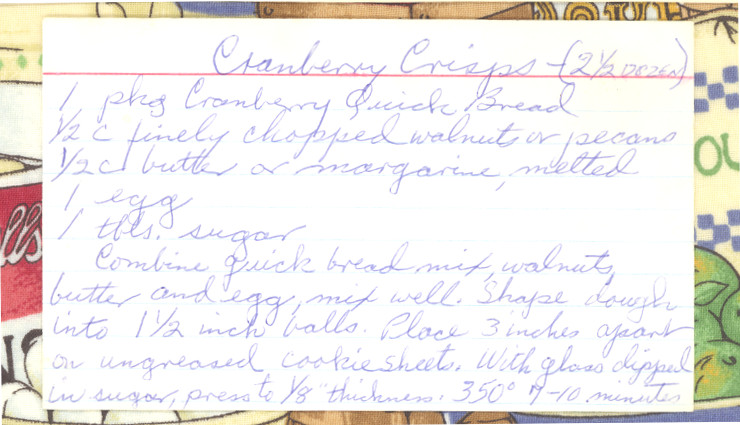 Cranberry Crisps - (2 1/2 DOZEN)
1 pkg Cranberry Quick Bread
1/2 c finely chopped walnuts or pecans
1/2 c butter or margarine, melted
1 egg
1 tbls. sugar
Combine quick bread mix, walnuts,
butter and egg, mix well. Shape dough
into 1 1/2 inch balls. Place 3 inches apart
on ungreased cookie sheets. With glass dipped
in sugar, press to 1/8" thickness. 350° 7-10 minutes